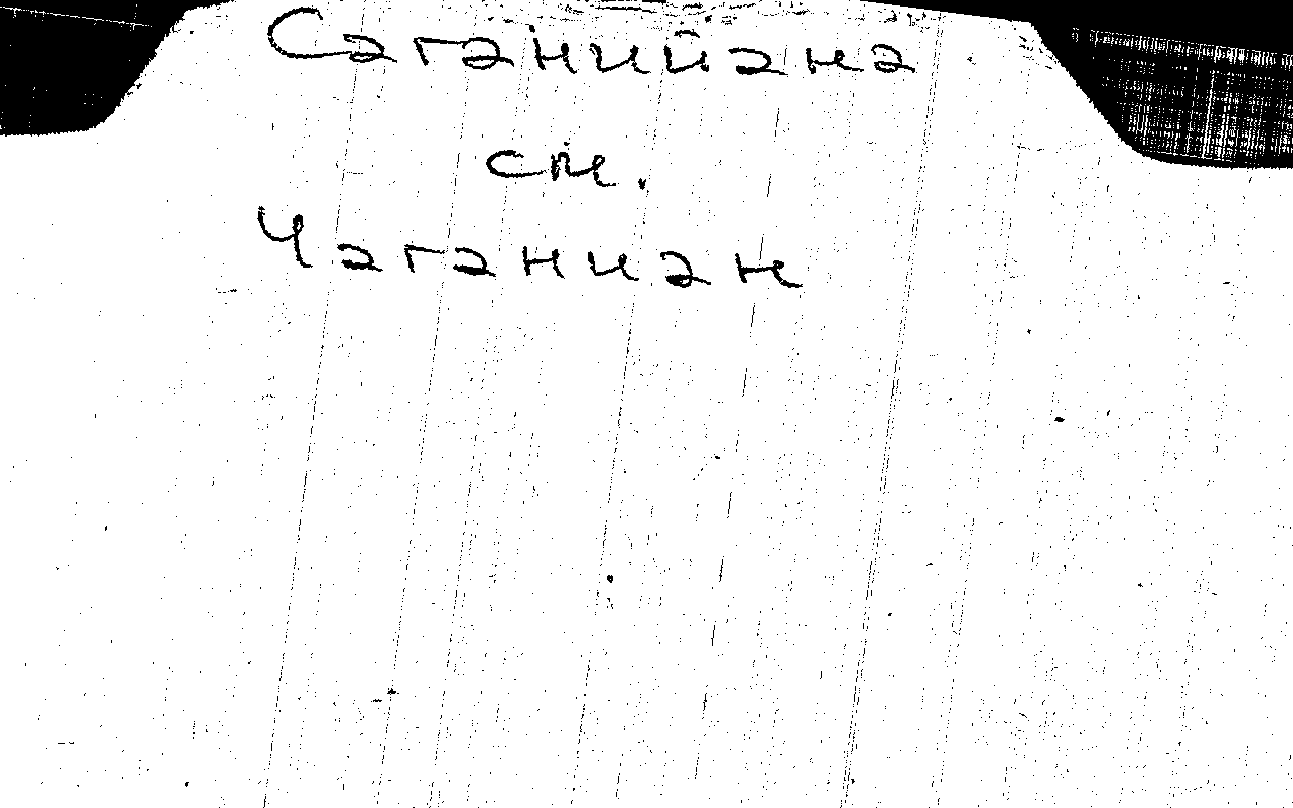 Саганийана
см.
Чаганиан